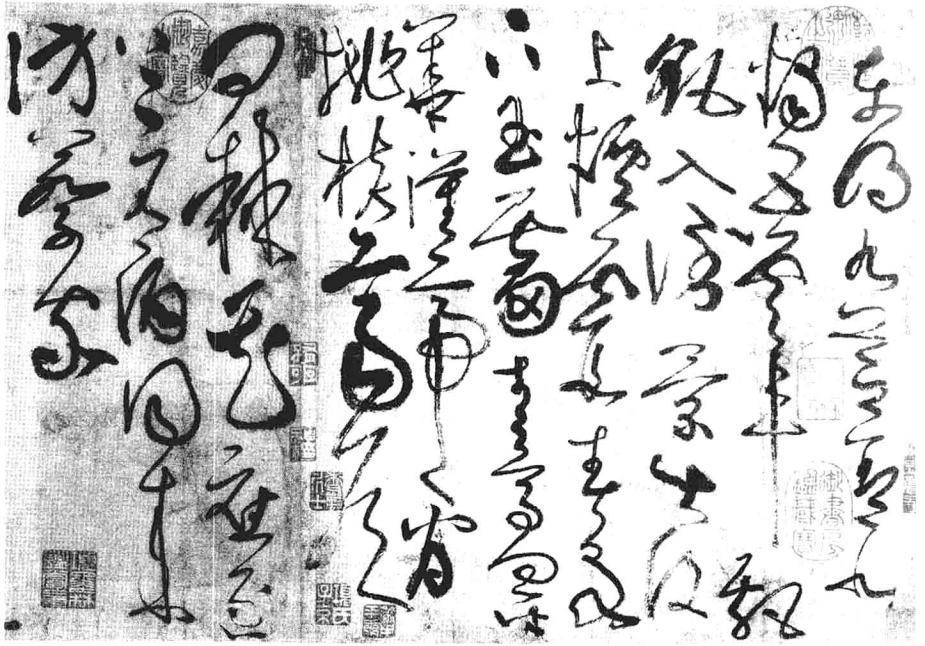 東明九芝蓋北
燭五雲車飄
颻入倒景出沒
上煙霞春泉
下玉霤青鳥向金
華漢帝看
桃核齊侯
問棘花應逐
上元酒同來
訪蔡家